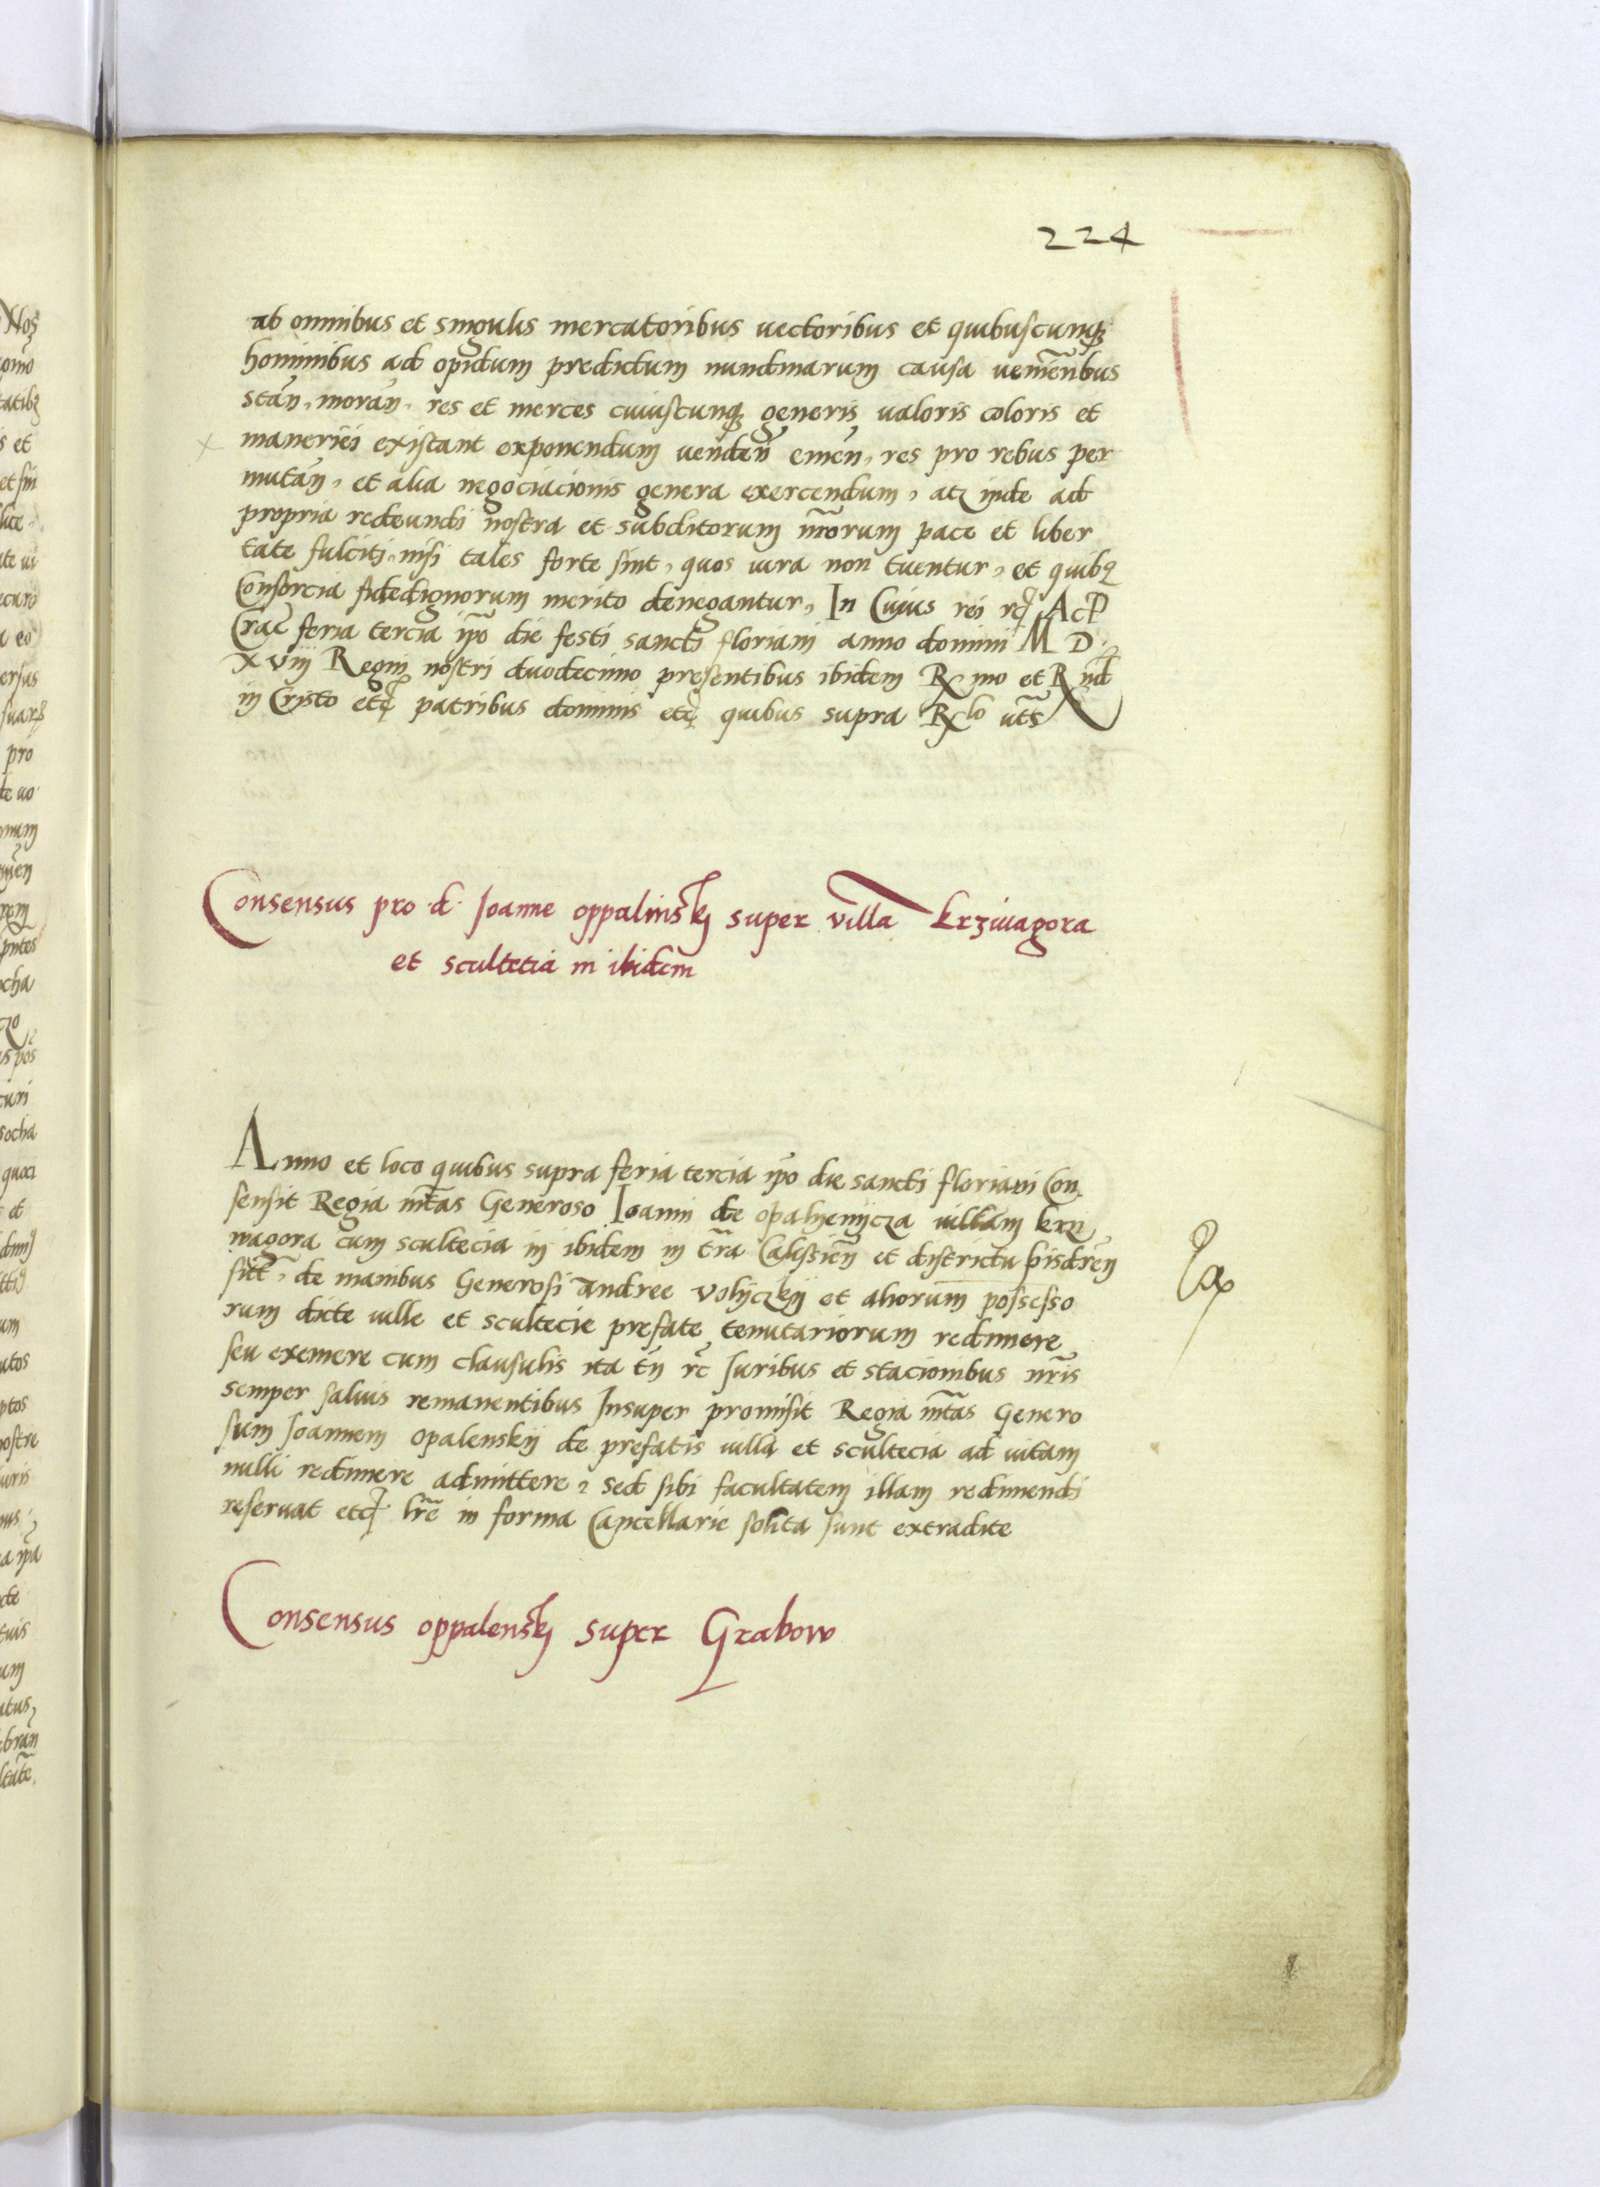 224
ab omnibus et singulis mercatoribus vectoribus et quibuscunq
hominibus ad opidum predictum nundinarum causa venien̄bus
stan̄, moran̄, res et merces cuiuscunq generis valoris coloris et
maneriei existant exponendum venden̄ emen̄, res pro rebus per
mutan̄, et alia negociacionis genera exercendum, atz inde ad
propria redeundi nostra et subditorum nr̄orum pace et liber
tate fulciti, nisi tales forte sint, quos iura non tuentur, et quibꝫ
Consorcia fidedignorum merito denegantur, In Cuius rei rc̄ AcP
Crac̄ feria tercia ip̄o die festi sancti floriani anno domini M D
XViij Regni nostri duodecimo presentibus ibidem Rmo et Rnd
in Cristo etc patribus dominis etc quibus supra Rlo ut s
Consensus pro d. Joanne oppalinskj super villa krziwagora
et scultetia in ibidem
Anno et loco quibus supra feria tercia ip̄o die sancti floriani Con
sensit Regia mt̄as Generoso Joanni de opalyenycza villam krzi
wagora cum scultecia in ibidem in tr̄a Calissien̄ et districtu pisdren̄
sitt̄, de manibus Generosi andree Volyczkij et aliorum possesso
rum dicte ville et scultecie prefate tenutariorum redimere
seu exemere cum clausulis ita tn̄ rc̄ Juribus et stacionibus nr̄is
semper salvis remanentibus Insuper promisit Regia mt̄as Genero
sum Joannem opalenskij de prefatis villa et scultecia ad vitam
nulli redimere admittere, sed sibi facultatem illam redimendi
reservat etc lr̄e in forma Cancellarie solita sunt extradite
Consensus oppalenskj super Grabow